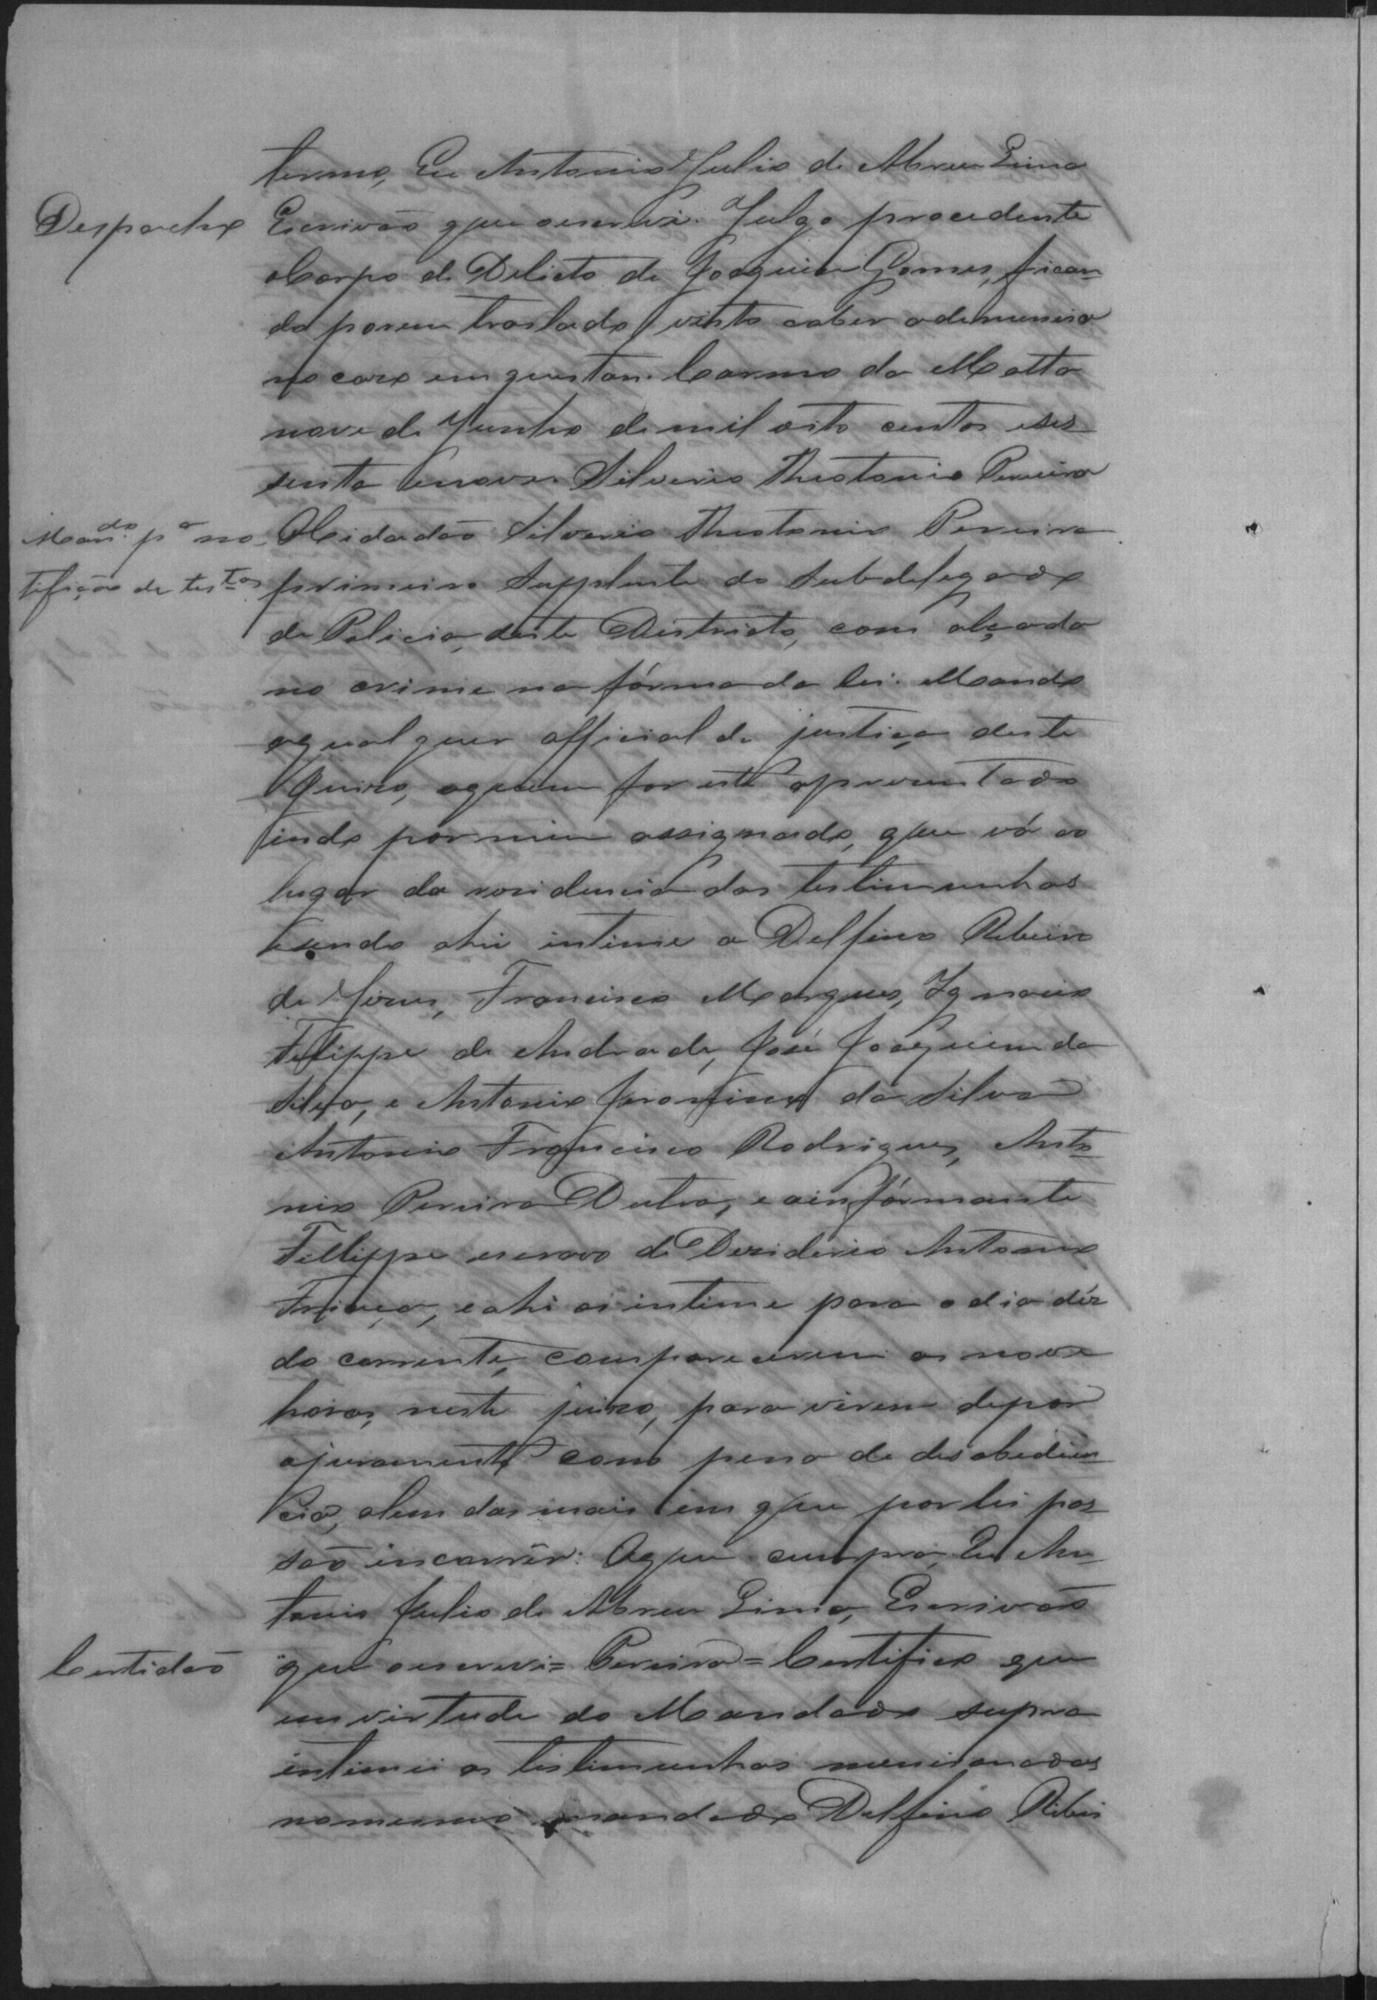 termo, Eu Antonio Julio de Abreu Lima
Despacho
Escrivão que escrevi. Julgo procedente
o Corpo de Delicto de Joaquim Gomes, fican-
do porem traslado visto caber a denuncia
no caso em questão. Carmo da Matta
nove de Junho de mil oito centos e ses-
senta e nove. Silverio Theotonio Pereira
Man.do p.a no-
tificação de test.as
O Cidadão Silverio Theotonio Pereira
primeiro Supplente do Subdelegado
de Policia, deste Districto, com alçada
no crime na fórma da lei. Mando
a qual quer official de justiça deste
Juizo, a quem for este apresentado
indo por mim assignado, que vá ao
lugar da residencia das testimunhas
sendo ahi intime a Delfino Ribeiro
de Jesus, Francisco Marques, Ignacio
Fellippe de Andrade, José Joaquim da
Silva, e Antonio Jeronimo da Silva
Antonio Francisco Rodrigues, Anto-
nio Pereira Dutra, e a informante
Fellippe escravo de Deziderio Antonio
França, e ahi os intime para o dia déz
do corrente, comparecerem as nove
horas, neste juizo, para virem depor
a juramento com pena de desobedien-
cia, alem das mais em que por lei pos-
são incorrêr: O que cumpra, Eu An-
tonio Julio de Abreu Lima, Escrivão
Certidão
que escrevi = Pereira = Certifico que
em virtude do Mandado supra
intimei as testimunhas mencionadas
no mesmo mandado Delfino Ribei